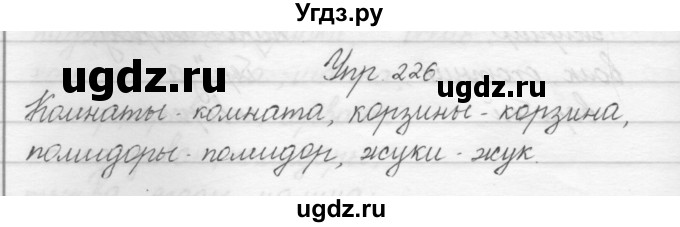 Угдз.ру
Упр. 226
ugdz.ru
ugdz.ru
Комнаты - комната, корзины - корзина,
помидоры - помидор, жуки - жук.
ugdz.ru